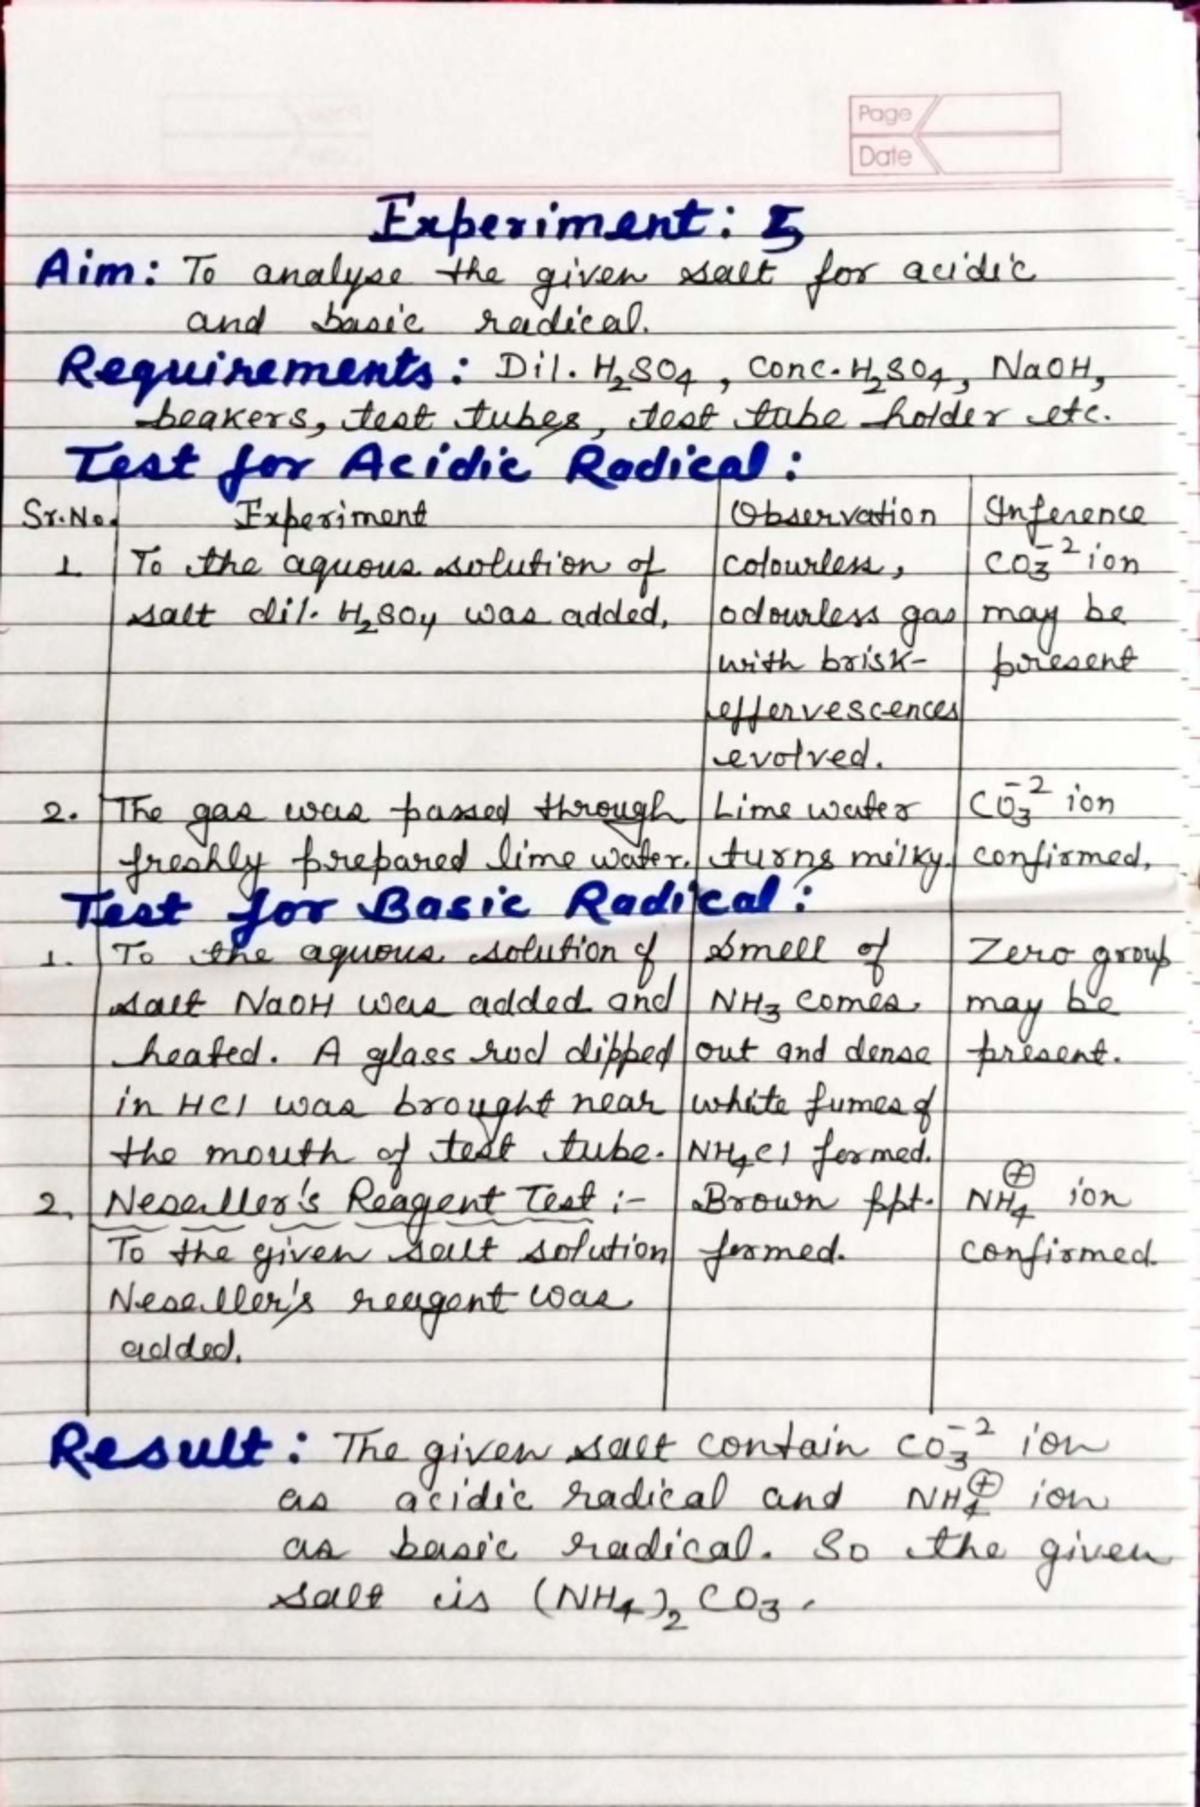 Page
Date
Experiment: 5
Aim: To analyse the given salt for acidic
and basic radical.
Requirements: Dil. H₂SO₄, Conc. H₂SO₄, NaOH,
beakers, test tubes, test tube holder etc.
Test for Acidic Radical:
Sr.No. Experiment Observation Inference
1. To the aquous solution of colourless, CO₃⁻² ion
salt dil. H₂SO₄ was added, odourless gas may be
with brisk- present
effervescences
evolved.
2. The gas was passed through Lime water CO₃⁻² ion
freshly prepared lime water. turns milky. confirmed.
Test for Basic Radical:
1. To the aquous solution of Smell of Zero group
salt NaOH was added and NH₃ comes may be
heated. A glass rod dipped out and dense present.
in HCl was brought near white fumes of
the mouth of test tube. NH₄Cl formed.
2. Nesseller's Reagent Test :- Brown ppt. NH₄⊕ ion
To the given salt solution formed. confirmed.
Nesseller's reagent was
added.
Result: The given salt contain CO₃⁻² ion
as acidic radical and NH₄⊕ ion
as basic radical. So the given
salt is (NH₄)₂CO₃.